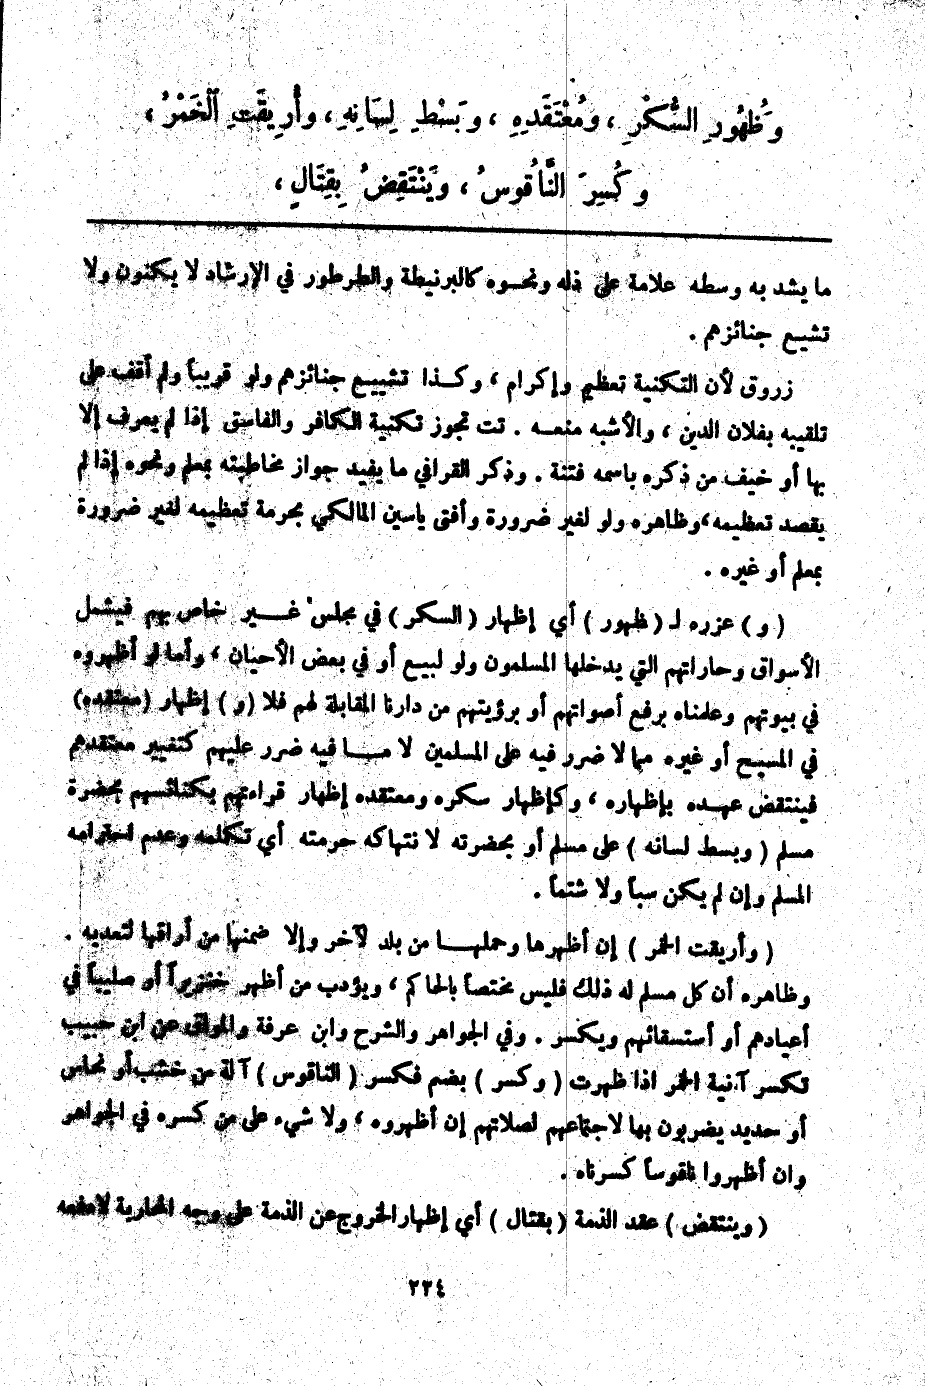 وَظُهُورِ السُّكْرِ ، وَمُعْتَقَدِهِ ، وَبَسْطِ لِسَانِهِ ، وأُرِيقَتِ الْخَمْرُ ،
وَكُسِرَ النَّاقُوسُ ، وَيَنْتَقِضُ بِقِتَالٍ ،
ما يشد به وسطه علامة على ذله ونحوه كالبرنيطة والطرطور في الإرشاد لا يكنون ولا
تشيع جنائزهم .
زروق لأن التكنية تعظيم وإكرام ، وكذا تشييع جنائزهم ولو قريباً ولم أقف على
تلقيبه بفلان الدين ، والأشبه منعه . تت تجوز تكنية الكافر والفاسق إذا لم يعرف إلا
بها أو خيف من ذكره باسمه فتنة . وذكر القرافي ما يفيد جواز مخاطبته بمعلم ونحوه إذا لم
يقصد تعظيمه،وظاهره ولو لغير ضرورة وأفتى ياسين المالكي بحرمة تعظيمه لغير ضرورة
بمعلم أو غيره .
( و ) عزره لـ ( ظهور ) أي إظهار ( السكر ) في مجلس غير خاص بهم فيشمل
الأسواق وحاراتهم التي يدخلها المسلمون ولو لبيع أو في بعض الأحيان ، وأما لو أظهروه
في بيوتهم وعلمناه برفع أصواتهم أو برؤيتهم من دارنا المقابلة لهم فلا (و) إظهار (معتقده)
في المسيح أو غيره مما لا ضرر فيه على المسلمين لا ما فيه ضرر عليهم كتغيير معتقدهم
فينتقض عهده بإظهاره ، وكإظهار سكره ومعتقده إظهار قراءتهم بكنائسهم بحضرة
مسلم ( وبسط لسانه ) على مسلم أو بحضرته لا نتهاكه حرمته أي تكلمه وعدم احترامه
المسلم وإن لم يكن سباً ولا شتماً .
( وأريقت الخمر ) إن أظهرها وحملها من بلد لآخر وإلا ضمنها من أراقها لتعديه .
وظاهره أن كل مسلم له ذلك فليس مختصاً بالحاكم ، ويؤدب من أظهر خنزيراً أو صليباً في
أعيادهم أو أستسقائهم ويكسر . وفي الجواهر والشرح وابن عرفة والمواق عن ابن حبيب
تكسر آنية الخمر اذا ظهرت ( وكسر ) بضم فكسر ( الناقوس ) آلة من خشب أو نحاس
أو حديد يضربون بها لاجتماعهم لصلاتهم إن أظهروه ، ولا شيء على من كسره في الجواهر
وان أظهروا ناقوساً كسرناه .
( وينتقض ) عقد الذمة ( بقتال ) أي إظهارالخروج عن الذمة على وجه المحاربة لامنعه
٢٣٤